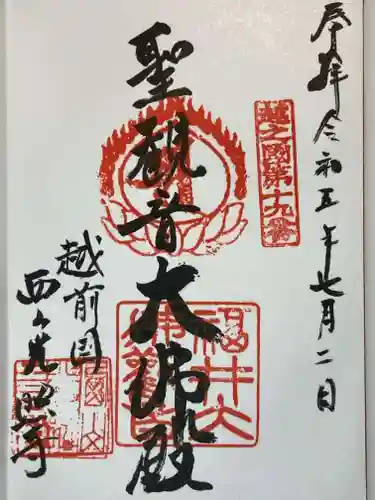 奉拝 令和五年七月二日
越之國第十九番
聖觀音大佛殿
福井大佛
越前国
西山光照寺